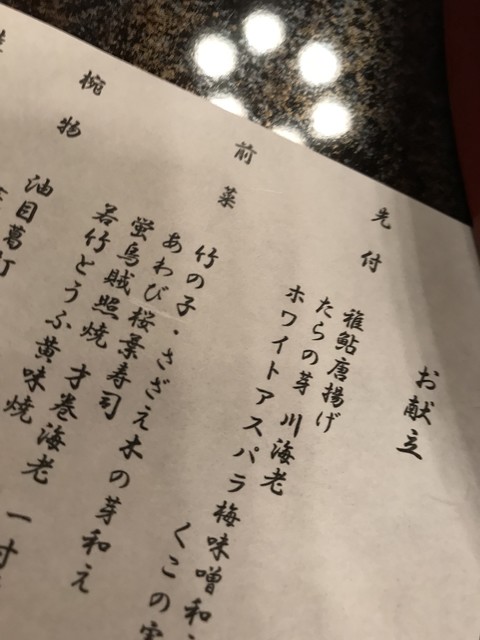 お献立
先付
稚鮎唐揚げ
たらの芽 川海老
ホワイトアスパラ梅味噌和
くこの実
前菜
竹の子・さざえ木の芽和え
あわび桜景寿司
蛍烏賊照焼 才巻海老
若竹とうふ黄味焼 一寸
椀物
油目葛打